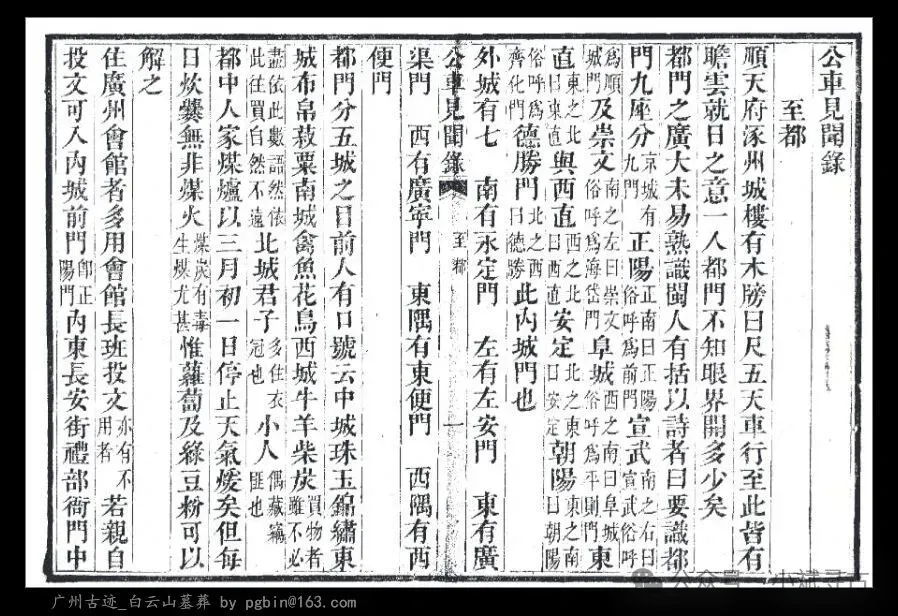 公車見聞錄
至都
順天府涿州城樓有木牓曰尺五天車行至此皆有
瞻雲就日之意一入都門不知眼界開多少矣
都門之廣大未易熟識閩人有括以詩者曰要識都
門九座分京城有九門正陽正南曰正陽俗呼爲前門宣武南之右曰宣武俗呼
爲順城門及崇文南之左曰崇文俗呼爲海岱門阜城西之南曰阜城俗呼爲平則門東
直東之北曰東直與西直西之北曰西直安定北之東曰安定朝陽東之南曰朝陽
俗呼爲齊化門德勝門北之西曰德勝此內城門也
外城有七 南有永定門 左有左安門 東有廣
公車見聞錄 至都 一
渠門 西有廣寧門 東隅有東便門 西隅有西
便門
都門分五城之日前人有口號云中城珠玉錦繡東
城布帛菽粟南城禽魚花鳥西城牛羊柴炭買物者雖不必
盡依此數語然依此往買自然不遠北城君子多住衣冠也小人偶藏竊匪也
都中人家煤爐以三月初一日停止天氣煖矣但每
日炊爨無非煤火煤炭有毒生煤尤甚惟蘿蔔及綠豆粉可以
解之
住廣州會館者多用會館長班投文亦有不用者若親自
投文可入內城前門即正陽門內東長安街禮部衙門中
公众号
广州古迹_白云山墓葬 by pgbin@163.com